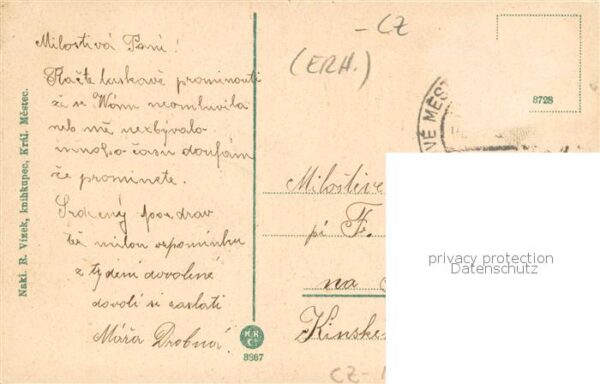 Milostivá Paní!
Račte laskavě prominouti
že se Vám neomluvila
neb mě nezbývalo
mnoho času doufám
že prominete.
Srdečný pozdrav
též milou vzpomínku
z týdení dovolené
dovolí si zaslati
Máňa Drobná
Nakl. R. Vízek, knihkupec, Král. Městec.
- CZ
(ERH.)
8728
VÉ MĚS
Milostive
pí F.
na
Kinske
privacy protection
Datenschutz
8867
CZ-